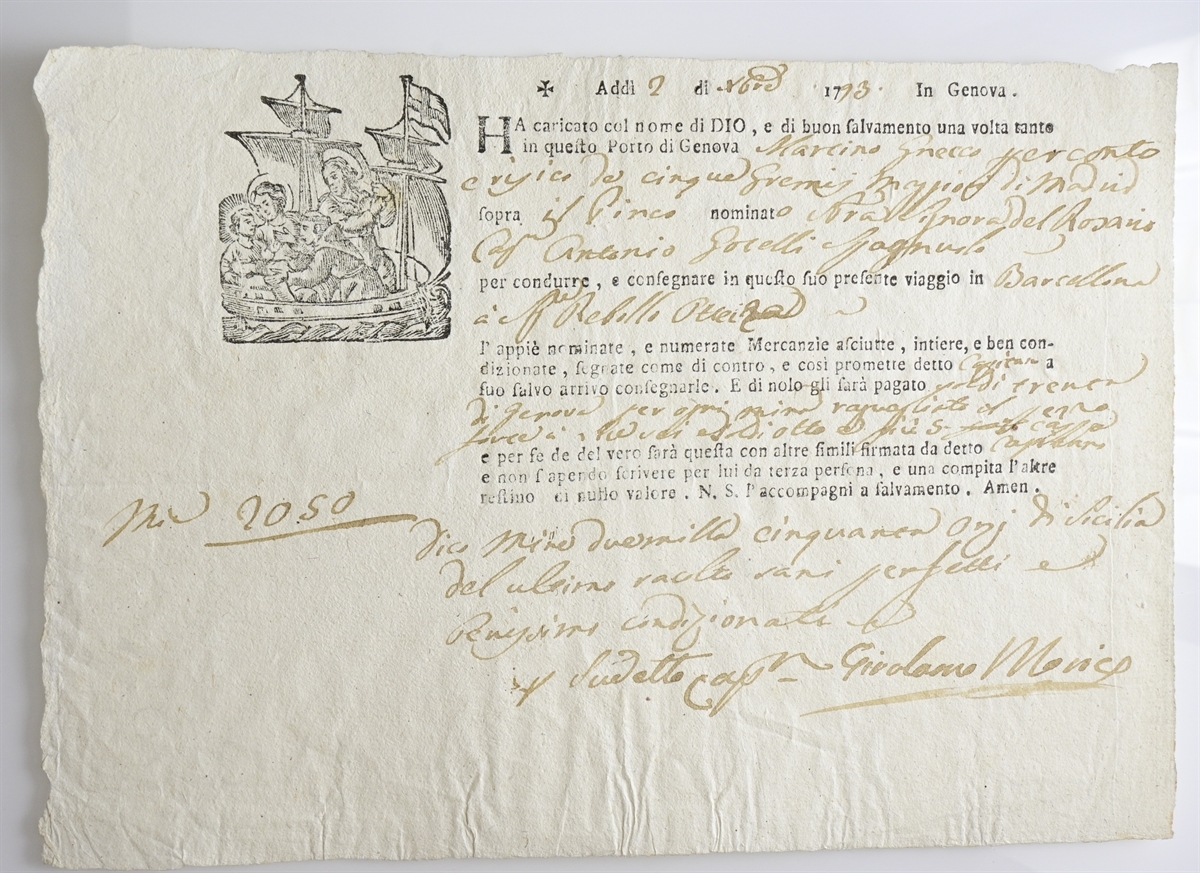 ✠ Addì 2 di Xbre 1793. In Genova.
HA caricato col nome di DIO, e di buon salvamento una volta tanto
in questo Porto di Genova Martino Gnecco per conto
e risico de cinque Gremij Maggiori di Madrid
sopra il Pinco nominato Nra Signora del Rosario
Capn Antonio spagnuolo
per condurre, e consegnare in questo suo presente viaggio in Barcellona
à
l'appiè nominate, e numerate Mercanzie asciutte, intiere, e ben con-
dizionate, segnate come di contro, e così promette detto Capitan a
suo salvo arrivo consegnarle. E di nolo gli sarà pagato soldi trenta
di Genova per ogni mina
e per fe de del vero sarà questa con altre simili firmata da detto Capitano
e non sapendo scrivere per lui da terza persona, e una compita l'altre
restino di nullo valore. N. S. l'accompagni a salvamento. Amen.
Mine 2050
Dico Mine duemilla cinquanta Orzj di Sicilia
del ultimo racolto sani perfetti e
Benissimo Condizionati
p sudetto Capn Girolamo